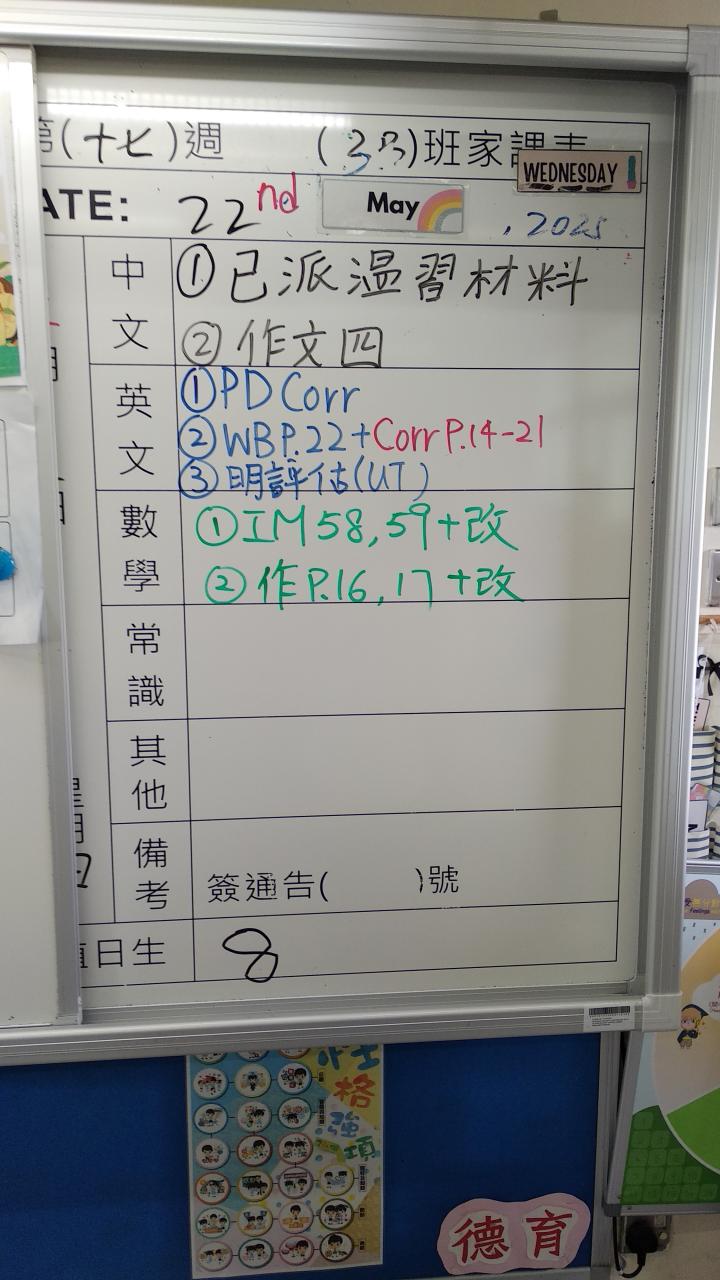 第(十七)週 (3B)班家課表
WEDNESDAY
ATE: 22nd May , 2025
中文
①已派温習材料
②作文四
英文
①PD Corr
②WBP.22+Corr P.14-21
③明評估(UT)
數學
①IM 58,59+改
②作P.16,17+改
常識
其他
備考
簽通告( )號
值日生
8
性格強項
德育